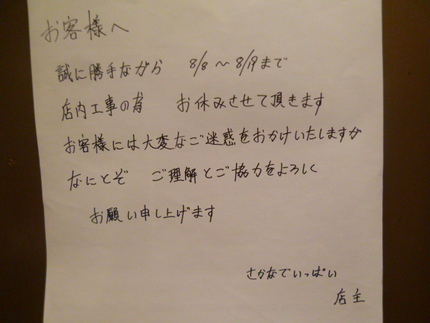 お客様へ
誠に勝手ながら 8/8～8/19まで
店内工事の為 お休みさせて頂きます
お客様には大変なご迷惑をおかけいたしますが
なにとぞ ご理解とご協力をよろしく
お願い申し上げます
さかなでいっぱい
店主